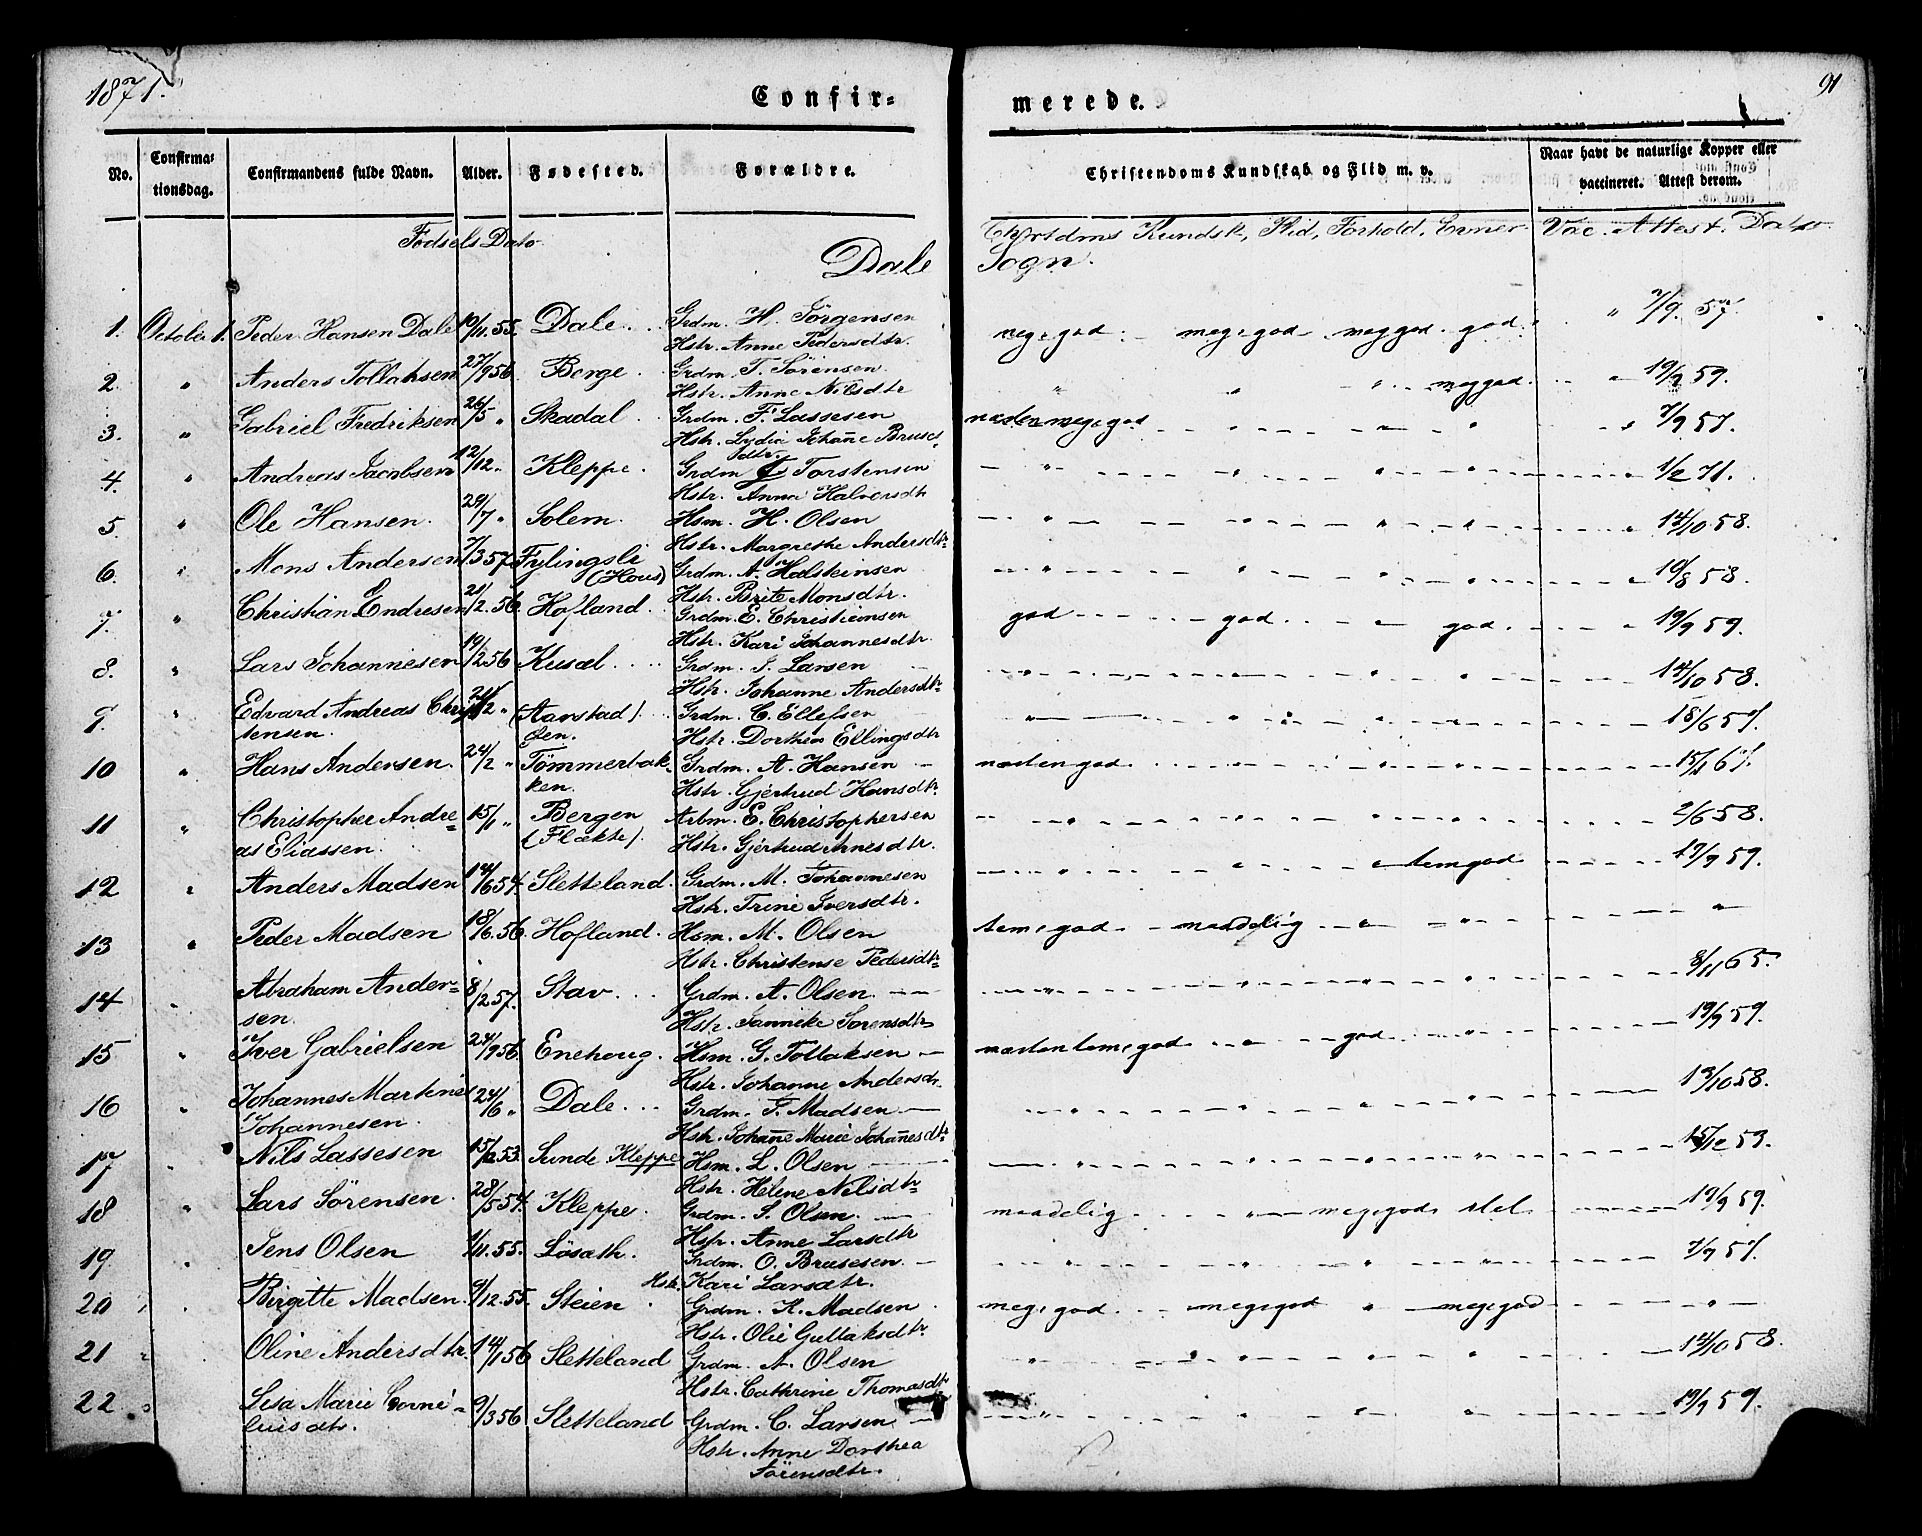 1871.
91
Confir-
merede.
No.
Confirma-
tionsdag.
Confirmandens fulde Navn.
Alder.
Fødested.
Forældre.
Christendoms Kundskab og Flid m. v.
Naar havt de naturlige Kopper eller
vaccineret. Attest derom.
Fødsels Dato
Kundsk, Flid, Forhold, Evner Vac. Attest. Dato
Dale Sogn.
1. October 1. Peder Hansen Dale 19/11. 55. Dale. Grdm. H. Jørgensen
Hstr. Anne Pedersdtr. meg. god. meg. god meg god. god. " 7/9. 57.
2. " Anders Tollaksen 27/9 56. Berge. Grdm. T. Sörensen
Hstr. Anne Nilsdtr " " " meg god. " 19/9 59.
3. " Gabriel Fredriksen 26/5 " Skadal. Grdm. F. Lassesen
Hstr. Lydia Johanne Bruses-
dtr. næsten meg. god " " " " 7/9 57.
4. " Andreas Jacobsen 12/12. " Kleppe. Grdm. Torstensen
Hstr. Anna Halvorsdtr " " " " 1/2 71.
5. " Ole Hansen. 29/7 " Solem. Hsm. H. Olsen
Hstr. Margrethe Andersdtr " " " " 14/10 58.
6. " Mons Andersen 7/3 57 Fylingsli
(Hous) Grdm. A. Halsteinsen
Hstr. Brite Monsdtr. " " " " 19/8 58.
7. " Christian Endresen 21/2. 56. Hofland. Grdm. E. Christiansen
Hstr. Kari Johannesdtr. god god. " god. " 19/9 59.
8. " Lars Johannesen 19/2 56 Grdm. J. Larsen
Hstr. Johanne Andersdtr " " " " 14/10 58.
9. " Edvard Andreas Chris
tensen. 21/2 " (Aarstad)
Øen. Grdm. C. Ellefsen
Hstr. Dorthea Ellingsdtr " " " " 18/6 57.
10 " Hans Andersen. 24/2 " Tömmerbak-
ken. Grdm. A. Hansen
Hstr. Gjertrud Hansdtr. næsten god " " "
11 " Christopher Andre-
as Eliassen. 15/1 " Bergen
(Flække). Arbm. E. Christophersen
Hstr. Gjertrud Arnesdtr. " " " " 2/6 58.
12 " Anders Madsen 14/6 54. Sletteland. Grdm. M. Johannesen
Hstr. Trine Iversdtr. " " " temgod 19/9 59.
13 " Peder Madsen 18/6. 56. Hofland. Hsm. M. Olsen
Hstr. Christense Pedersdtr tem. god. maadelig " " "
14 " Abraham Ander-
sen. 8/2 57. Stav. Grdm. A. Olsen.
Hstr. Janneke Sorensdtr " " " " 8/11 65.
15 " Iver Gabrielsen 24/9 56. Enehoug. Hsm. G. Tollaksen
Hstr. Johanne Andersdtr. næsten tem. god " god " 19/9 59.
16 " Johannes Martines
Johannesen. 24/6 " Dale. Grdm. J. Madsen
Hstr. Johanne Marie Johannesdtr " " " " 13/10 58.
17 " Nils Lassesen Sunde Kleppe Hsm. L. Olsen
Hstr. Helene Nilsdtr " " " "
18 " Lars Sörensen. 28/5 54. Kleppe. Grdm. S. Olsen.
Hstr. Anne Larsdtr maadelig. " meg. god slet 19/9 59.
19. " Jens Olsen 1/11. 55. Grdm. O. Brusesen.
Hstr. Kari Larsdtr. " " " " 7/9 57.
20 " Birgitte Madsen. 9/12. 55. Steien Grdm. K. Madsen
Hstr. Olie Gullaksdtr. meg. god. meg. god " meg. god "
21 " Oline Andersdtr. 14/1 56 Sletteland Grdm. A. Olsen
Hstr. Cathrine Thomasdtr " " " " 14/10 58.
22. " Lisa Marie Corne-
liusdtr. 9/3 56 Sletteland Grdm. C. Larsen
Hstr. Anne Dorthea
Sörensdtr. " " " " 19/9 59.